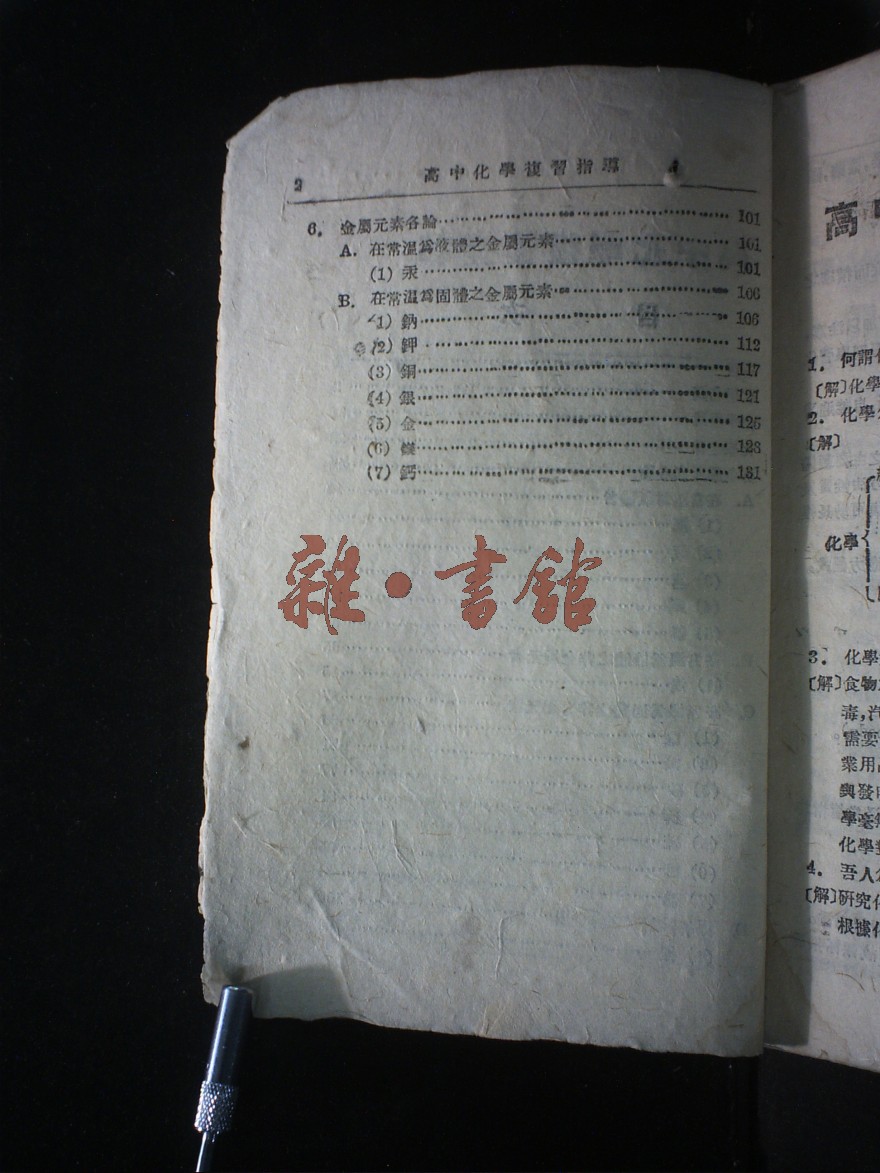 2 高中化學複習指導
6. 金屬元素各論 101
A. 在常溫爲液體之金屬元素 101
(1) 汞 101
B. 在常溫爲固體之金屬元素 106
(1) 鈉 106
(2) 鉀 112
(3) 銅 117
(4) 銀 121
(5) 金 125
(6) 鎂 128
(7) 鈣 131
雜·書館
高
1. 何謂
〔解〕化學
2. 化學
〔解〕
化學
3. 化學
〔解〕食物
毒,汽
需要
業用
與發
學毫
化學
4. 吾人
〔解〕研究
根據